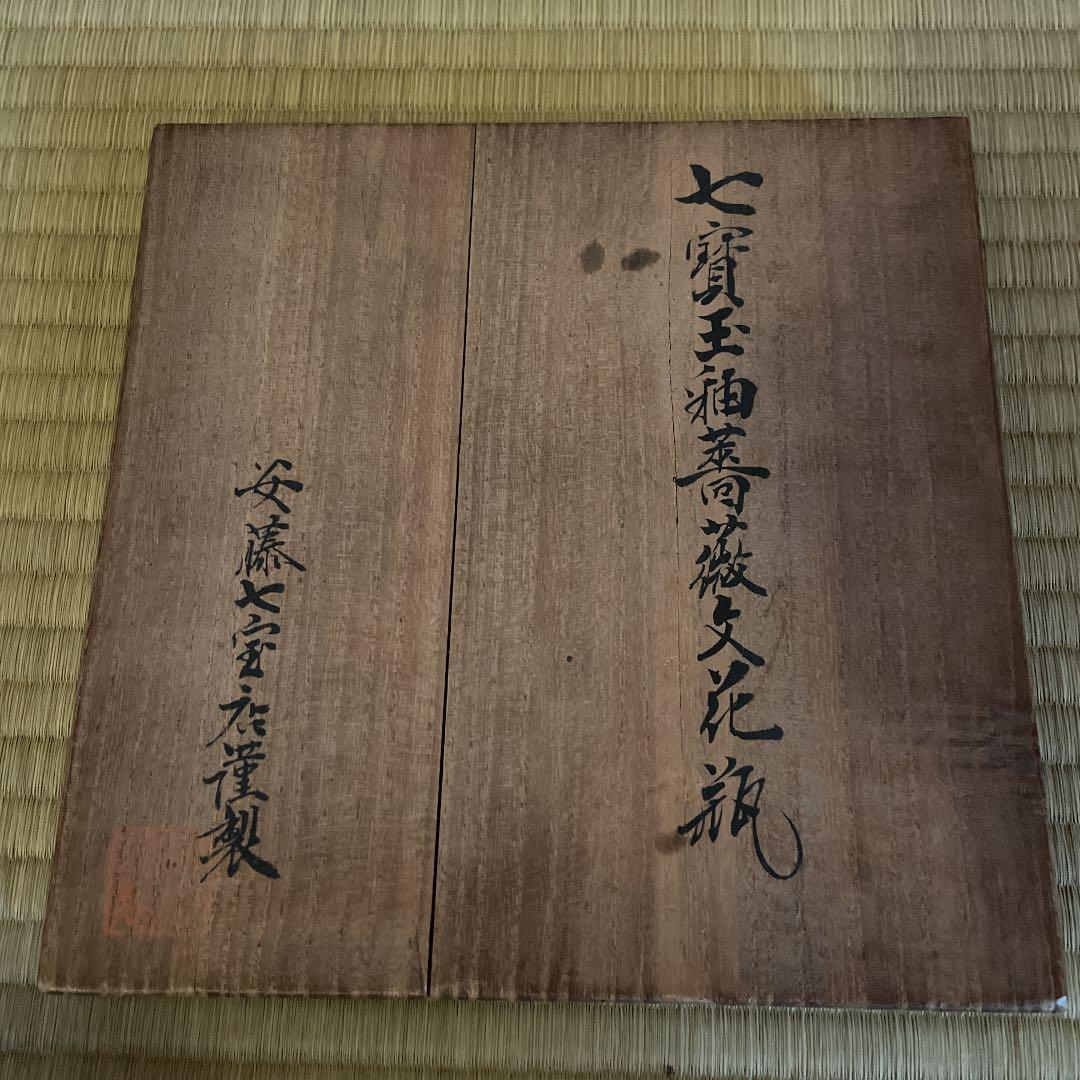 七寶玉釉薔薇文花瓶
安藤七宝店謹製